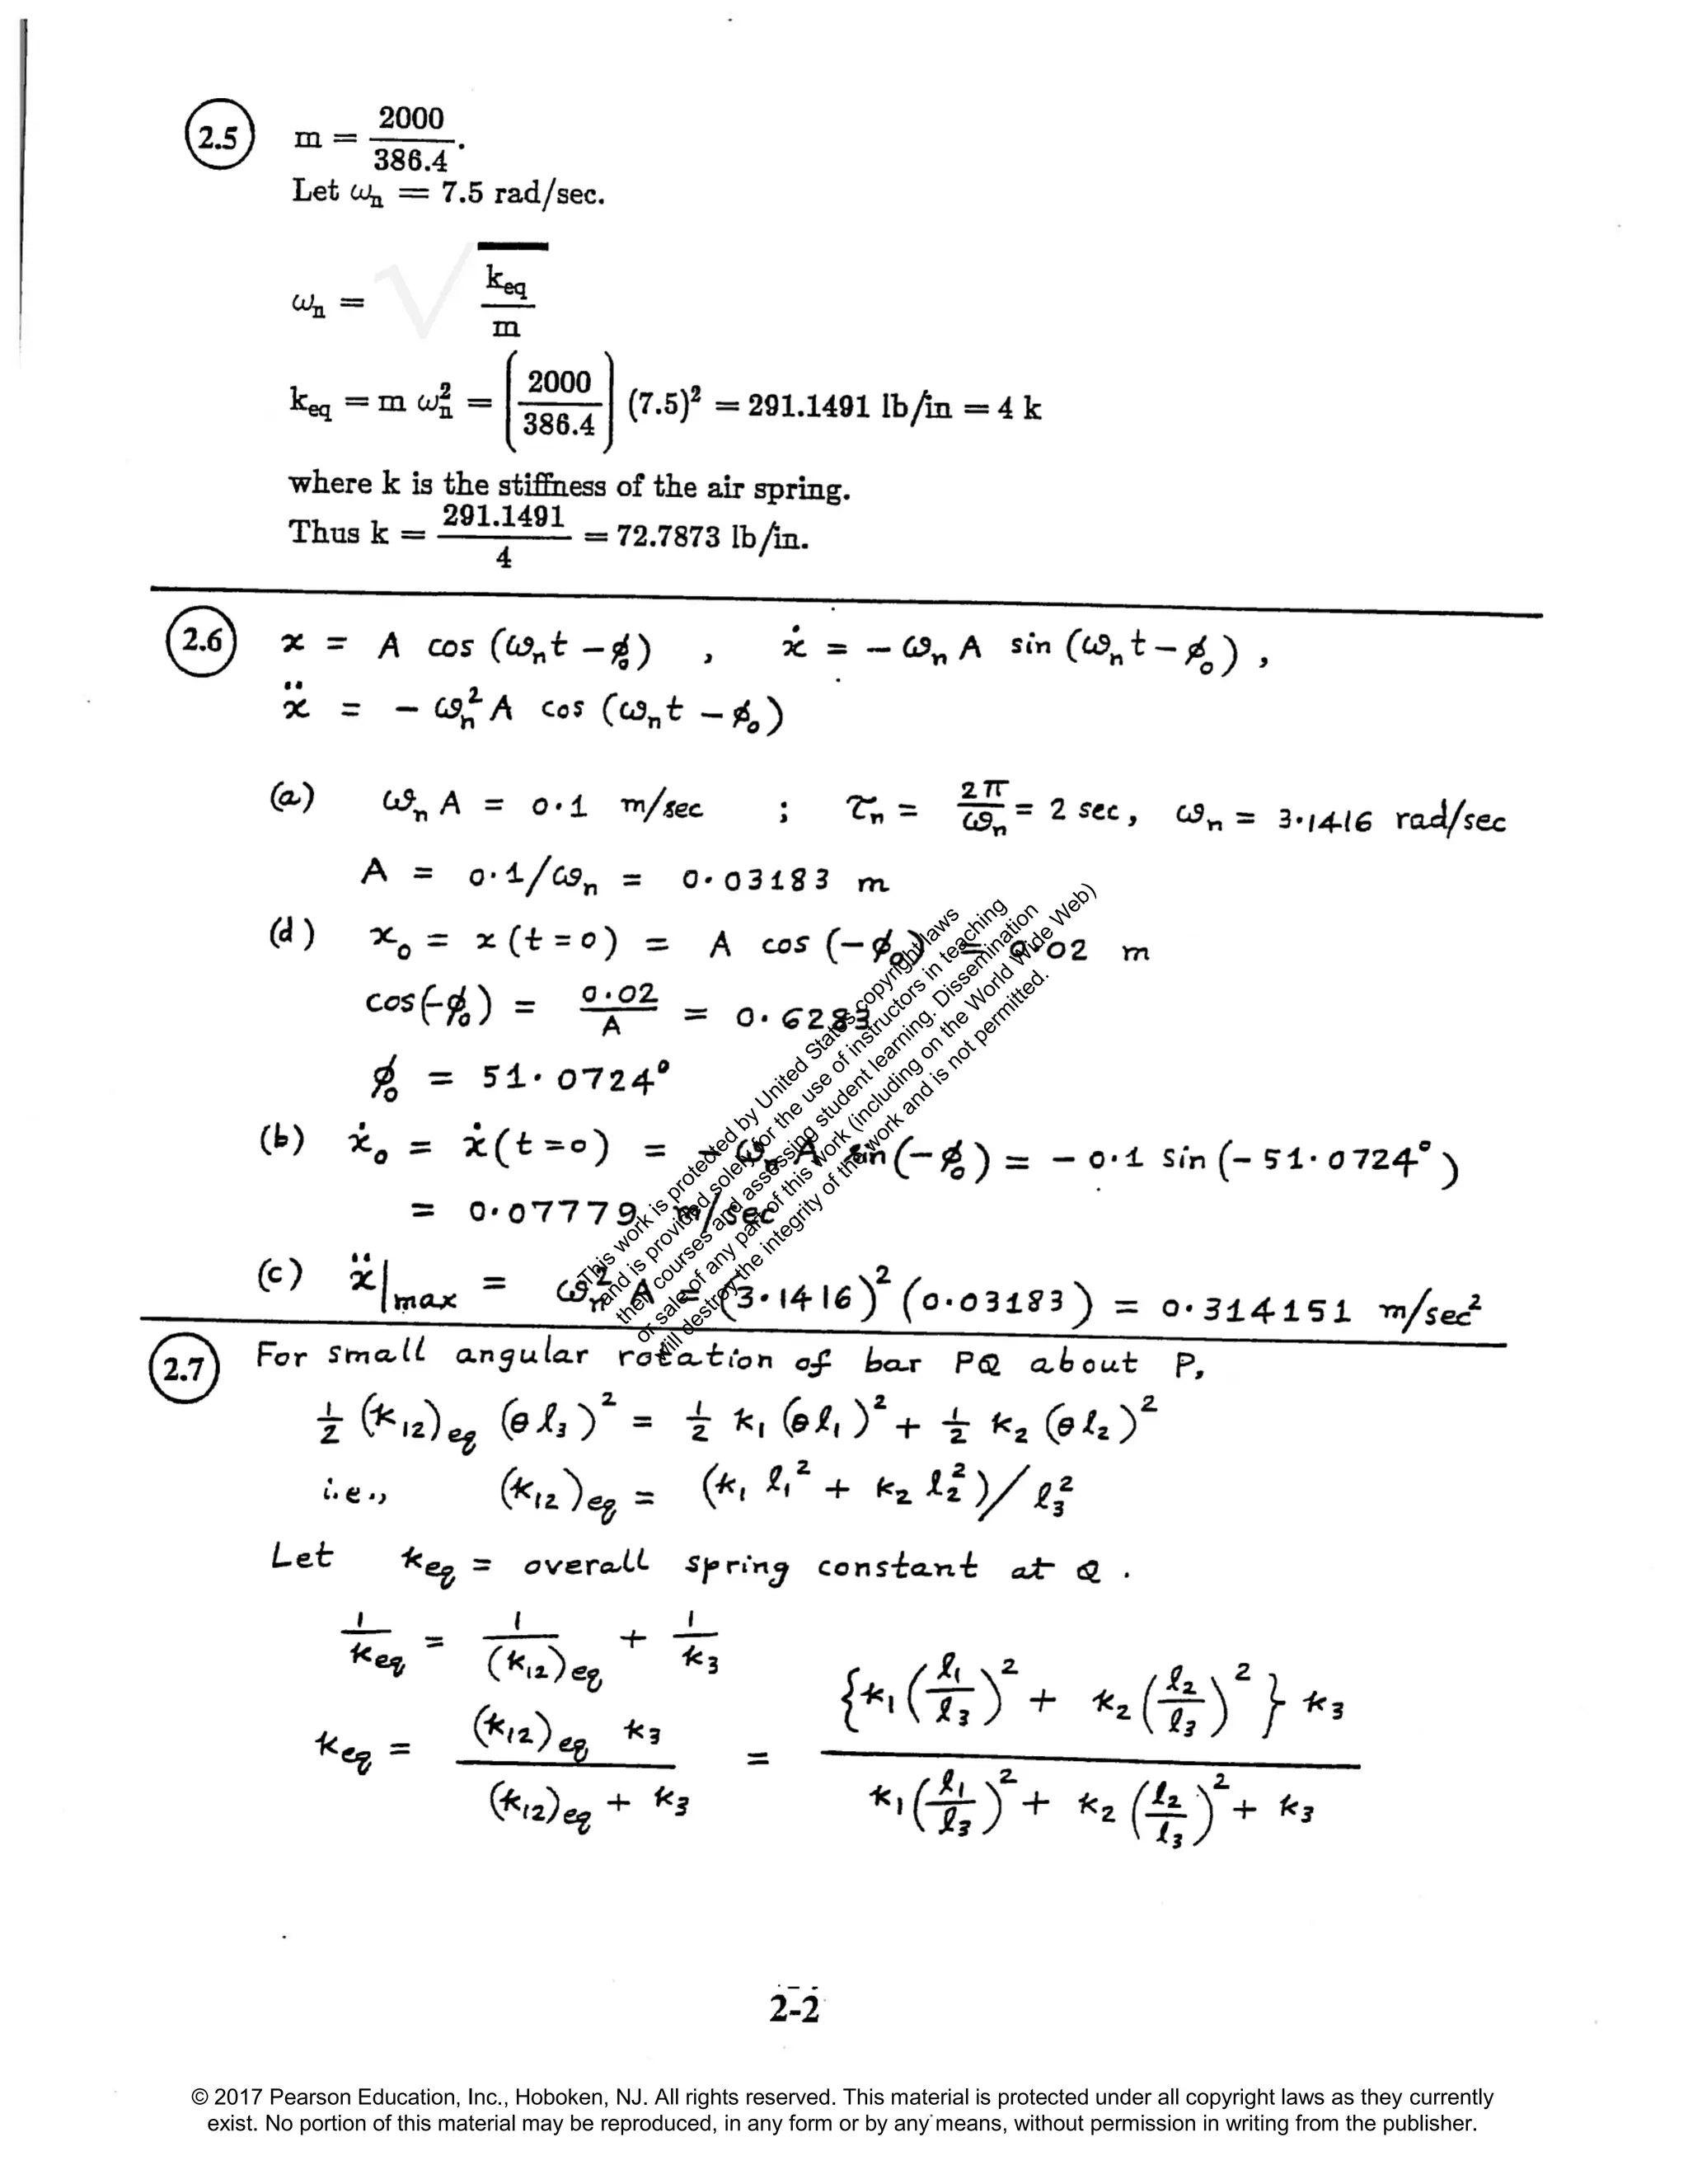 2.5 m = 2000/386.4.
Let ωn = 7.5 rad/sec.
ωn = √ keq/m
keq = m ωn² = (2000/386.4) (7.5)² = 291.1491 lb/in = 4 k
where k is the stiffness of the air spring.
Thus k = 291.1491/4 = 72.7873 lb/in.
2.6 x = A cos (ωnt − ϕ0) , ẋ = − ωn A sin (ωn t − ϕ0) ,
ẍ = − ωn² A cos (ωnt − ϕ0)
(a) ωn A = 0.1 m/sec ; τn = 2π/ωn = 2 sec, ωn = 3.1416 rad/sec
A = 0.1/ωn = 0.03183 m
(d) x0 = x(t=0) = A cos (−ϕ0) = 0.02 m
cos(−ϕ0) = 0.02/A = 0.6283
ϕ0 = 51.0724°
(b) ẋ0 = ẋ(t=0) = − ωn A sin(−ϕ0) = − 0.1 sin (− 51.0724°)
= 0.07779 m/sec
(c) ẍ|max = ωn² A = (3.1416)² (0.03183) = 0.314151 m/sec²
This work is protected by United States copyright laws
and is provided solely for the use of instructors in teaching
their courses and assessing student learning. Dissemination
or sale of any part of this work (including on the World Wide Web)
will destroy the integrity of the work and is not permitted.
2.7 For small angular rotation of bar PQ about P,
½ (k12)eq (θ l3)² = ½ k1 (θ l1)² + ½ k2 (θ l2)²
i.e., (k12)eq = (k1 l1² + k2 l2²)/ l3²
Let keq = overall spring constant at Q .
1/keq = 1/(k12)eq + 1/k3
keq = (k12)eq k3 / ((k12)eq + k3) = {k1 (l1/l3)² + k2 (l2/l3)²} k3 / (k1 (l1/l3)² + k2 (l2/l3)² + k3)
2-2
© 2017 Pearson Education, Inc., Hoboken, NJ. All rights reserved. This material is protected under all copyright laws as they currently
exist. No portion of this material may be reproduced, in any form or by any means, without permission in writing from the publisher.